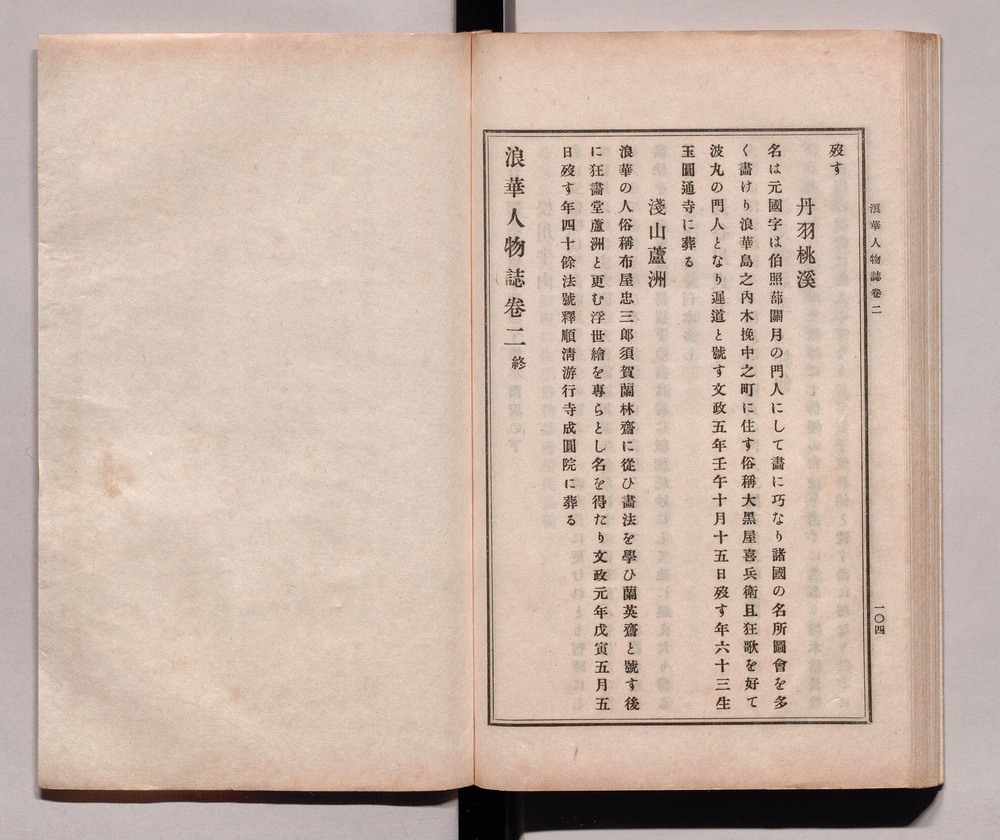 浪華人物誌卷二
一〇四
歿す
丹羽桃溪
名は元國字は伯照蔀關月の門人にして畵に巧なり諸國の名所圖會を多
く畵けり浪華島之內木挽中之町に住す俗稱大黑屋喜兵衛且狂歌を好て
波丸の門人となり遲道と號す文政五年壬午十月十五日歿す年六十三生
玉圓通寺に葬る
淺山蘆洲
浪華の人俗稱布屋忠三郎須賀蘭林齋に從ひ畵法を學ひ蘭英齋と號す後
に狂畵堂蘆洲と更む浮世繪を專らとし名を得たり文政元年戊寅五月五
日歿す年四十餘法號釋順淸游行寺成圓院に葬る
浪華人物誌卷二終